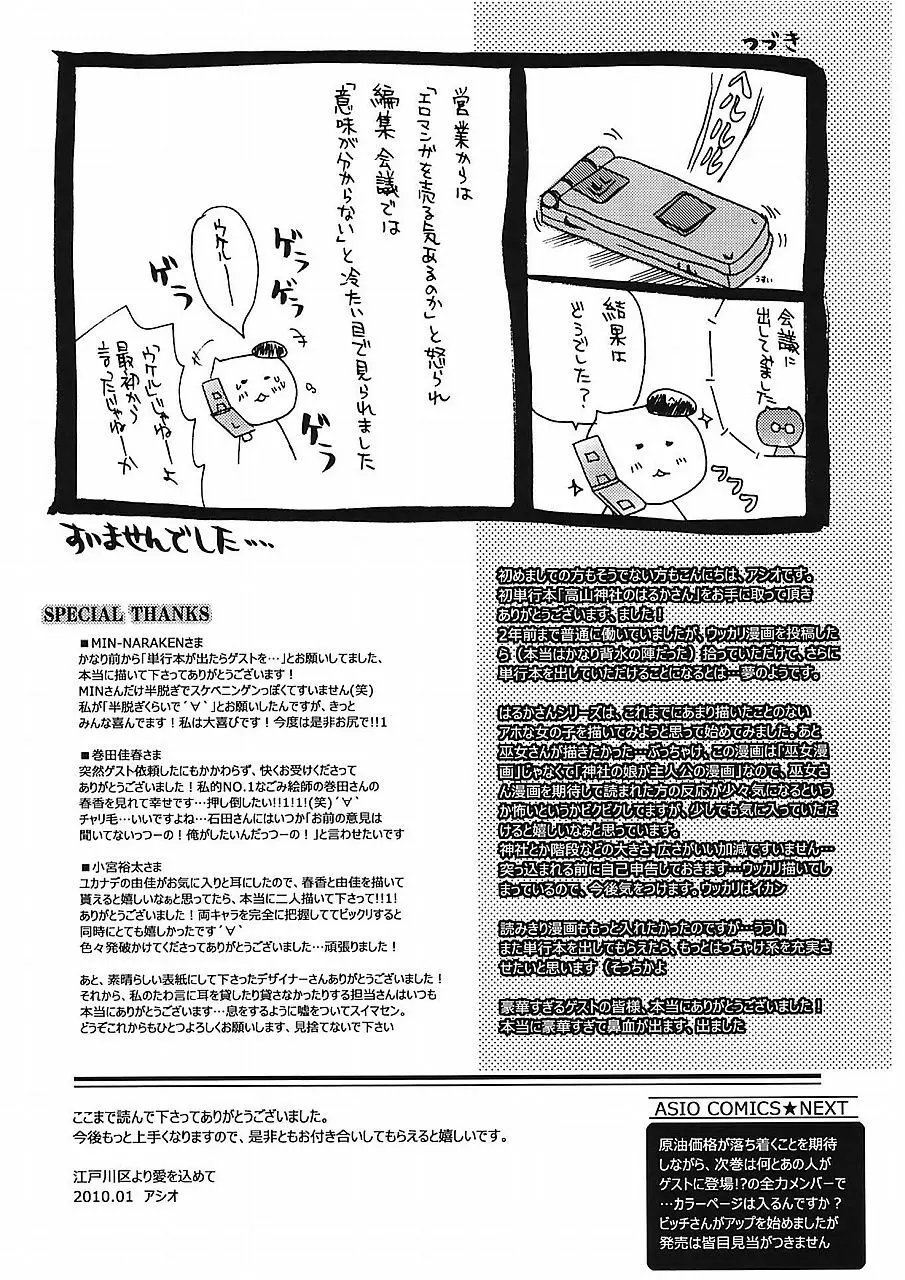 つづき
ヘルルル
うすい
会議に
出してみました
結果は
どうでした？
っっっ
営業からは
「エロマンガを売る気あるのか」と怒られ
編集会議では
「意味が分からない」と冷たい目で見られました
ウケルー
ゲラ
ゲラ
ゲラ
ゲラ
「ウケル」じゃねーよ
最初から
言ったじゃねーか
すいませんでした….
初めましての方もそうでない方もこんにちは、アシオです。
初単行本「高山神社のはるかさん」をお手に取って頂き
ありがとうございます、ました！
2年前まで普通に働いていましたが、ウッカリ漫画を投稿した
ら（本当はかなり背水の陣だった）拾っていただけて、さらに
単行本を出していただけることになるとは…夢のようです。
はるかさんシリーズは、これまでにあまり描いたことのない
アホな女の子を描いてみようと思って始めてみました。あと
巫女さんが描きたかった…ぶっちゃけ、この漫画は「巫女漫
画」じゃなくて「神社の娘が主人公の漫画」なので、巫女さ
ん漫画を期待して読まれた方の反応が少々気になるという
か怖いというかビクビクしてますが、少しでも気に入っていただ
けると嬉しいなぁと思っています。
神社とか階段などの大きさ・広さがいい加減ですいません…
突っ込まれる前に自己申告しておきます…ウッカリ描いてし
まっているので、今後気をつけます。ウッカリはイカン
読みきり漫画ももっと入れたかったのですが…ううｈ
また単行本を出してもらえたら、もっとはっちゃけ系を充実さ
せたいと思います（そっちかよ
豪華すぎるゲストの皆様、本当にありがとうございました！
本当に豪華すぎて鼻血が出ます、出ました
SPECIAL THANKS
■MIN-NARAKENさま
かなり前から「単行本が出たらゲストを…」とお願いしてました、
本当に描いて下さってありがとうございます！
MINさんだけ半脱ぎでスケベニンゲンっぽくてすいません(笑)
私が「半脱ぎくらいで´∀`」とお願いしたんですが、きっと
みんな喜んでます！私は大喜びです！今度は是非お尻で!!1
■巻田佳春さま
突然ゲスト依頼したにもかかわらず、快くお受けくださって
ありがとうございました！私的NO.1なごみ絵師の巻田さんの
春香を見れて幸せです…押し倒したい!!1!1!(笑)´∀`
チャリ毛…いいですよね…石田さんにはいつか「お前の意見は
聞いてないっつーの！俺がしたいんだっつーの！」と言わせたいです
■小宮裕太さま
ユカナデの由佳がお気に入りと耳にしたので、春香と由佳を描いて
貰えると嬉しいなぁと思ってたら、本当に二人描いて下さって!!1!
ありがとうございました！両キャラを完全に把握しててビックリすると
同時にとても嬉しかったです´∀`
色々発破かけてくださってありがとうございました…頑張りました！
あと、素晴らしい表紙にして下さったデザイナーさんありがとうございました！
それから、私のたわ言に耳を貸したり貸さなかったりする担当さんはいつも
本当にありがとうございます…息をするように嘘をついてスイマセン。
どうぞこれからもひとつよろしくお願いします、見捨てないで下さい
ここまで読んで下さってありがとうございました。
今後もっと上手くなりますので、是非ともお付き合いしてもらえると嬉しいです。
江戸川区より愛を込めて
2010.01　アシオ
ASIO COMICS★NEXT
原油価格が落ち着くことを期待
しながら、次巻は何とあの人が
ゲストに登場!?の全力メンバーで
…カラーページは入るんですか？
ビッチさんがアップを始めましたが
発売は皆目見当がつきません